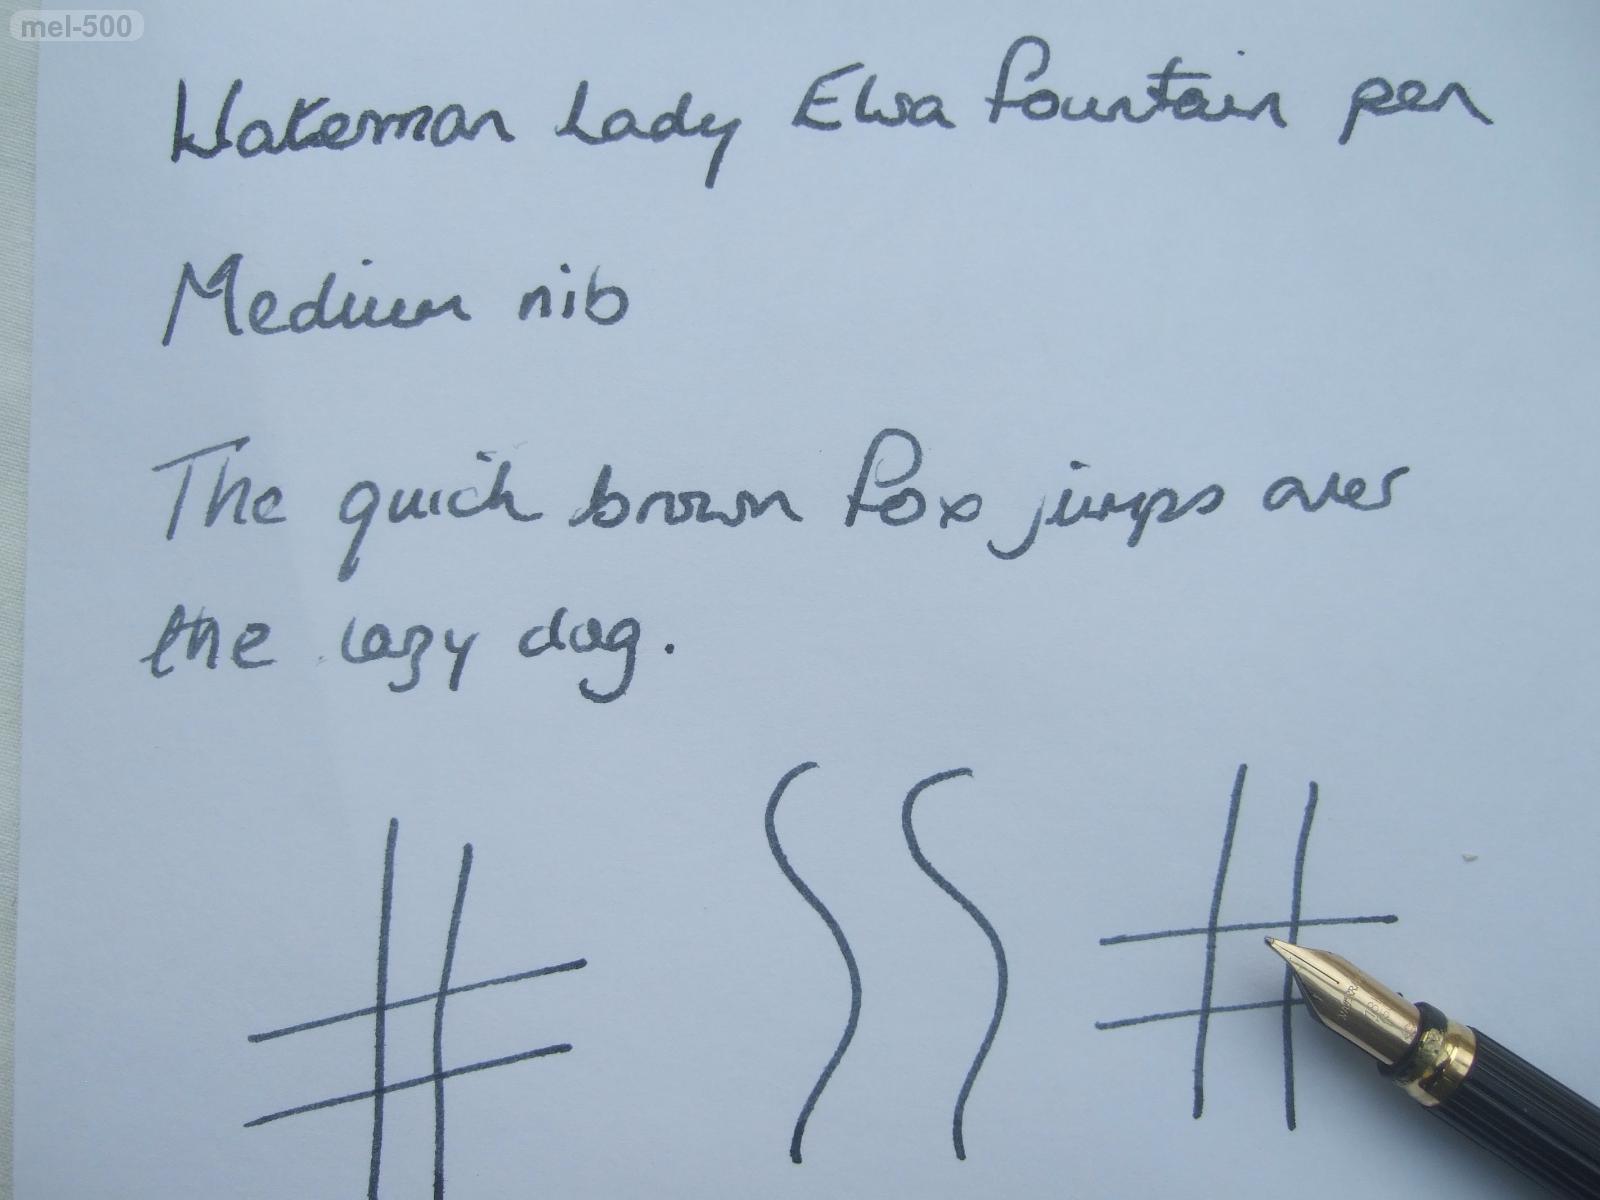 mel-500
Waterman Lady Elsa fountain pen
Medium nib
The quick brown fox jumps over
the lazy dog.